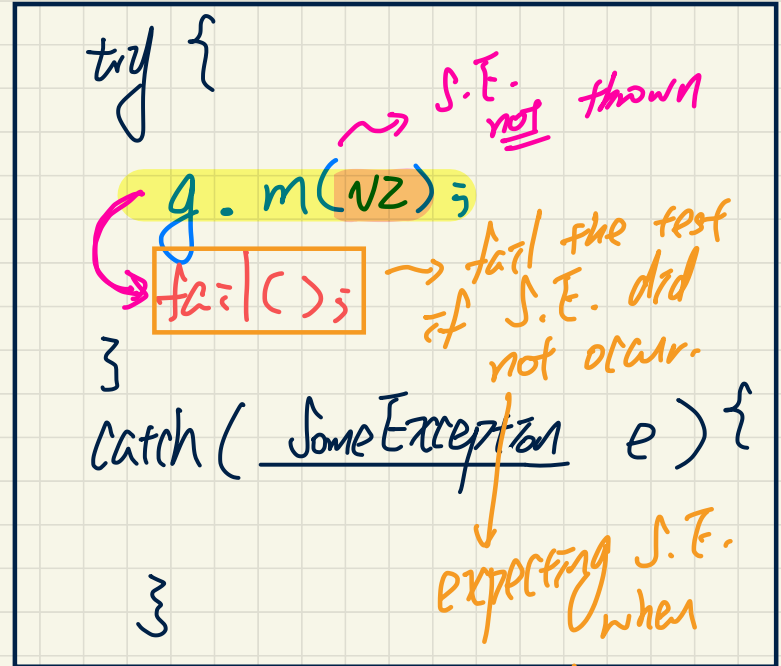 try {
S.E.
not thrown
g. m(v2);
fail();
→ fail the test
if S.E. did
not occur.
}
catch( SomeException e){
expecting S.E.
when
}